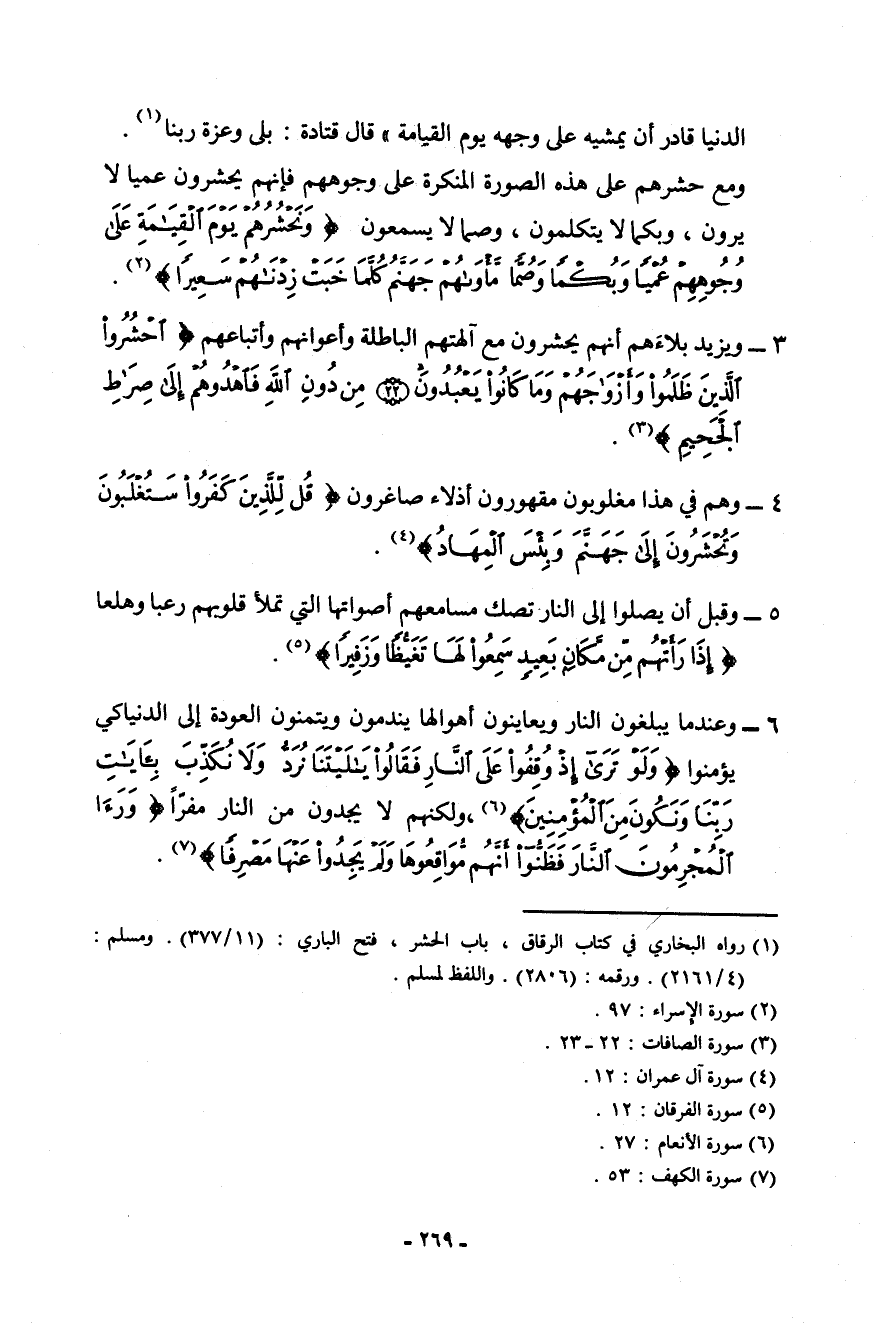 الدنيا قادر أن يمشيه على وجهه يوم القيامة » قال قتادة : بلى وعزة ربنا(١) .
ومع حشرهم على هذه الصورة المنكرة على وجوههم فإنهم يحشرون عميا لا
يرون ، وبكما لا يتكلمون ، وصما لا يسمعون ﴿ وَنَحْشُرُهُمْ يَوْمَ ٱلْقِيَٰمَةِ عَلَىٰ
وُجُوهِهِمْ عُمْيًا وَبُكْمًا وَصُمًّا مَّأْوَىٰهُمْ جَهَنَّمُ كُلَّمَا خَبَتْ زِدْنَٰهُمْ سَعِيرًا ﴾(٢) .
٣ ــ ويزيد بلاءهم أنهم يحشرون مع آلهتهم الباطلة وأعوانهم وأتباعهم ﴿ ٱحْشُرُوا۟
ٱلَّذِينَ ظَلَمُوا۟ وَأَزْوَٰجَهُمْ وَمَا كَانُوا۟ يَعْبُدُونَ ۝٢٢ مِن دُونِ ٱللَّهِ فَٱهْدُوهُمْ إِلَىٰ صِرَٰطِ
ٱلْجَحِيمِ ﴾(٣) .
٤ ــ وهم في هذا مغلوبون مقهورون أذلاء صاغرون ﴿ قُل لِّلَّذِينَ كَفَرُوا۟ سَتُغْلَبُونَ
وَتُحْشَرُونَ إِلَىٰ جَهَنَّمَ وَبِئْسَ ٱلْمِهَادُ ﴾(٤) .
٥ ــ وقبل أن يصلوا إلى النار تصك مسامعهم أصواتها التي تملأ قلوبهم رعبا وهلعا
﴿ إِذَا رَأَتْهُم مِّن مَّكَانٍ بَعِيدٍ سَمِعُوا۟ لَهَا تَغَيُّظًا وَزَفِيرًا ﴾(٥) .
٦ ــ وعندما يبلغون النار ويعاينون أهوالها يندمون ويتمنون العودة إلى الدنياكي
يؤمنوا ﴿ وَلَوْ تَرَىٰٓ إِذْ وُقِفُوا۟ عَلَى ٱلنَّارِ فَقَالُوا۟ يَٰلَيْتَنَا نُرَدُّ وَلَا نُكَذِّبَ بِـَٔايَٰتِ
رَبِّنَا وَنَكُونَ مِنَ ٱلْمُؤْمِنِينَ﴾(٦) ،ولكنهم لا يجدون من النار مفراً ﴿ وَرَءَا
ٱلْمُجْرِمُونَ ٱلنَّارَ فَظَنُّوٓا۟ أَنَّهُم مُّوَاقِعُوهَا وَلَمْ يَجِدُوا۟ عَنْهَا مَصْرِفًا ﴾(٧) .
(١) رواه البخاري في كتاب الرقاق ، باب الحشر ، فتح الباري : (٣٧٧/١١) . ومسلم :
(٢١٦١/٤) . ورقمه : (٢٨٠٦) . واللفظ لمسلم .
(٢) سورة الإسراء : ٩٧ .
(٣) سورة الصافات : ٢٢ ــ ٢٣ .
(٤) سورة آل عمران : ١٢ .
(٥) سورة الفرقان : ١٢ .
(٦) سورة الأنعام : ٢٧ .
(٧) سورة الكهف : ٥٣ .
- ٢٦٩ -